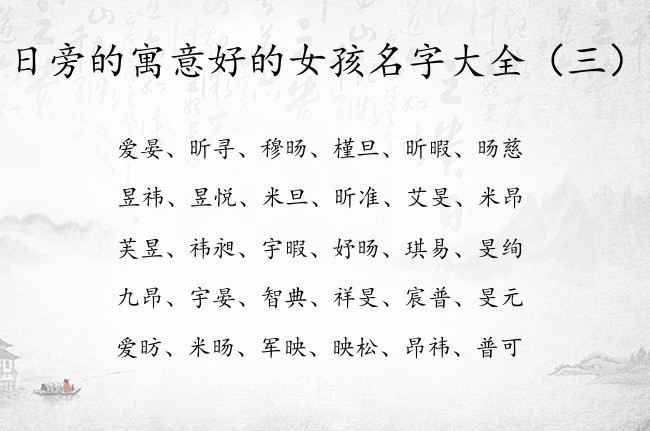 日旁的寓意好的女孩名字大全（三）
爱晏、昕寻、穆旸、槿旦、昕暇、旸慈
昱祎、昱悦、米旦、昕准、艾旻、米昂
芙昱、祎昶、宇暇、妤旸、琪易、旻绚
九昂、宇晏、智典、祥旻、宸普、旻元
爱昉、米旸、军映、映松、昂祎、普可